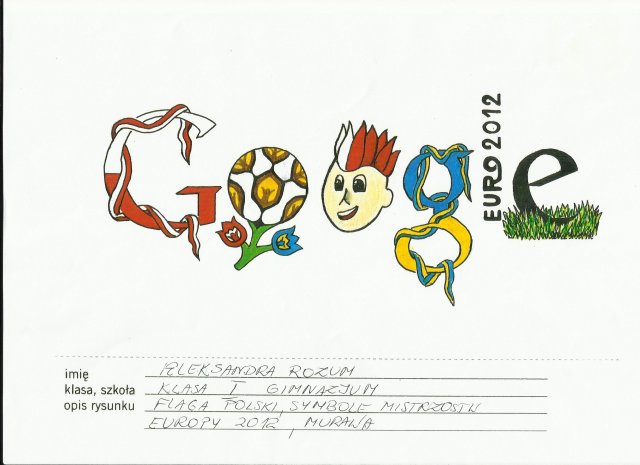 Google EURO 2012
imię ALEKSANDRA ROZUM
klasa, szkoła KLASA I GIMNAZJUM
opis rysunku FLAGA POLSKI, SYMBOLE MISTRZOSTW
EUROPY 2012, MURAWA